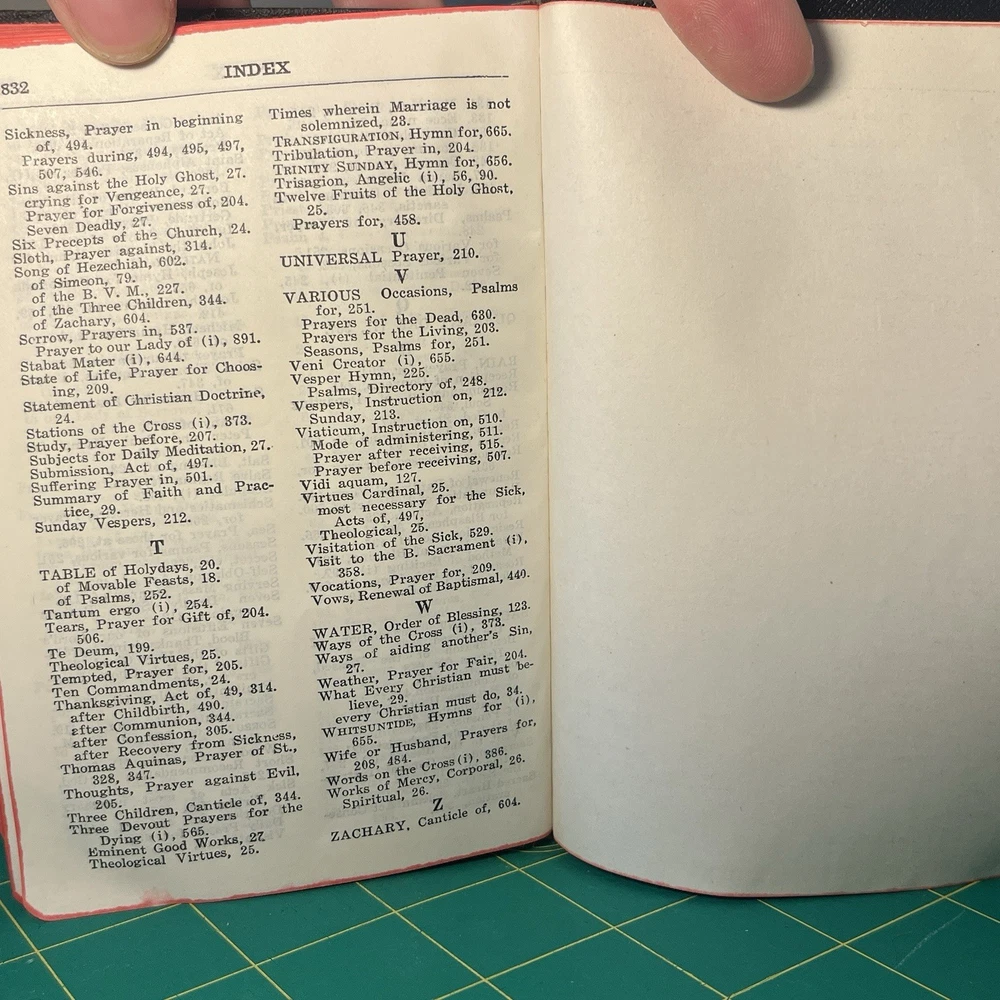 832
INDEX
Sickness, Prayer in beginning
of, 494.
Prayers during, 494, 495, 497,
507, 546.
Sins against the Holy Ghost, 27.
crying for Vengeance, 27.
Prayer for Forgiveness of, 204.
Seven Deadly, 27.
Six Precepts of the Church, 24.
Sloth, Prayer against, 314.
Song of Hezechiah, 602.
of Simeon, 79.
of the B. V. M., 227.
of the Three Children, 344.
of Zachary, 604.
Sorrow, Prayers in, 537.
Prayer to our Lady of (i), 891.
Stabat Mater (i), 644.
State of Life, Prayer for Choos-
ing, 209.
Statement of Christian Doctrine,
24.
Stations of the Cross (i), 373.
Study, Prayer before, 207.
Subjects for Daily Meditation, 27.
Submission, Act of, 497.
Suffering Prayer in, 501.
Summary of Faith and Prac-
tice, 29.
Sunday Vespers, 212.
T
TABLE of Holydays, 20.
of Movable Feasts, 18.
of Psalms, 252.
Tantum ergo (i), 254.
Tears, Prayer for Gift of, 204.
506.
Te Deum, 199.
Theological Virtues, 25.
Tempted, Prayer for, 205.
Ten Commandments, 24.
Thanksgiving, Act of, 49, 314.
after Childbirth, 490.
after Communion, 344.
after Confession, 305.
after Recovery from Sickness,
Thomas Aquinas, Prayer of St.,
328, 347.
Thoughts, Prayer against Evil,
205.
Three Children, Canticle of, 344.
Three Devout Prayers for the
Dying (i), 565.
Eminent Good Works, 27.
Theological Virtues, 25.
Times wherein Marriage is not
solemnized, 23.
TRANSFIGURATION, Hymn for, 665.
Tribulation, Prayer in, 204.
TRINITY SUNDAY, Hymn for, 656.
Trisagion, Angelic (i), 56, 90.
Twelve Fruits of the Holy Ghost,
25.
Prayers for, 458.
U
UNIVERSAL Prayer, 210.
V
VARIOUS Occasions, Psalms
for, 251.
Prayers for the Dead, 630.
Prayers for the Living, 203.
Seasons, Psalms for, 251.
Veni Creator (i), 655.
Vesper Hymn, 225.
Psalms, Directory of, 248.
Vespers, Instruction on, 212.
Sunday, 213.
Viaticum, Instruction on, 510.
Mode of administering, 511.
Prayer after receiving, 515.
Prayer before receiving, 507.
Vidi aquam, 127.
Virtues Cardinal, 25.
most necessary for the Sick,
Acts of, 497,
Theological, 25.
Visitation of the Sick, 529.
Visit to the B. Sacrament (i),
358.
Vocations, Prayer for, 209.
Vows, Renewal of Baptismal, 440.
W
WATER, Order of Blessing, 123.
Ways of the Cross (i), 373.
Ways of aiding another's Sin,
27.
Weather, Prayer for Fair, 204.
What Every Christian must be-
lieve, 29.
every Christian must do, 34.
WHITSUNTIDE, Hymns for (i),
655.
Wife or Husband, Prayers for,
208, 484.
Words on the Cross (i), 386.
Works of Mercy, Corporal, 26.
Spiritual, 26.
Z
ZACHARY, Canticle of, 604.